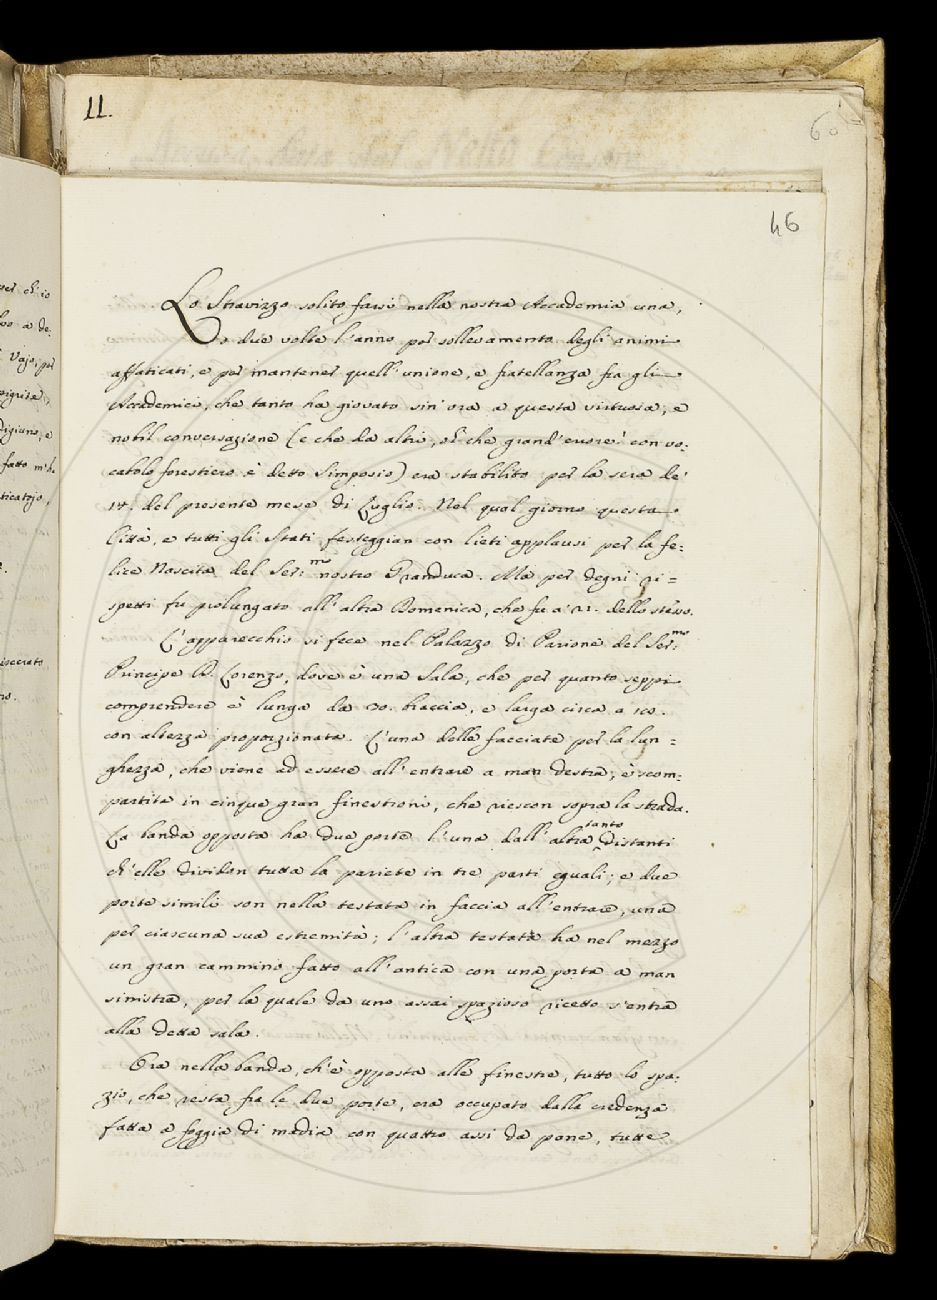 11.
60
46
Lo Stravizzo solito farsi nella nostra Accademia una,
o due volte l'anno per sollevamento degli animi
affaticati, e per mantener quell'unione, e fratellanza fra gli
Accademici, che tanto ha giovato sin'ora a questa virtuosa, e
nobil conversazione (e che da altri, oh che grand'errore! con vo:
cabolo forestiero è detto Simposio) era stabilito per la sera de'
14. del presente mese di Luglio. Nel qual giorno questa
Città, e tutti gli Stati festeggian con lieti applausi per la fe:
lice Nascita del Ser:mo nostro Granduca. Ma per degni ri=
spetti fu prolungato all'altra Domenica, che fu a' 21. dello stesso.
L'apparecchio si fece nel Palazzo di Parione del Ser:mo
Principe D. Lorenzo, dove è una Sala, che per quanto seppi
comprendere è lunga da 30. braccia, e larga circa a
con altezza proporzionata. L'una delle facciate per la lun=
ghezza, che viene ad essere all'entrare a man destra, è scom:
partita in cinque gran finestroni, che riescon sopra la strada.
La banda opposta ha due porte l'una dall'altra tanto distanti
ch'elle dividon tutta la pariete in tre parti eguali; e due
porte simili son nella testata in faccia all'entrare, una
per ciascuna sua estremità; l'altra testata ha nel mezzo
un gran cammino fatto all'antica con una porta a man
sinistra, per la quale da uno assai spazioso ricetto s'entra
alla detta sala.
Ora nella banda, ch'è opposta alle finestre, tutto lo spa:
zio, che resta fra le due porte, era occupato dalla credenza
fatta a foggia di madia con quattro assi da pane, tutte